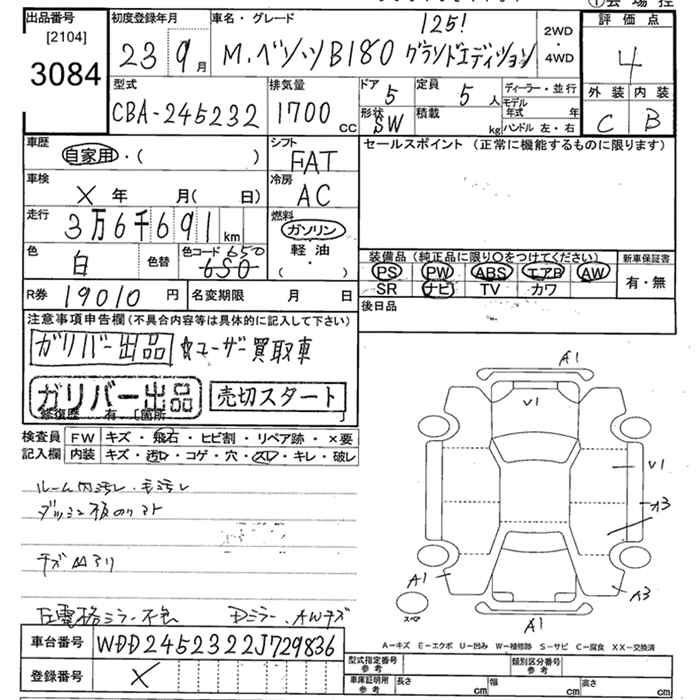 ①会場控
出品番号 [2104] 3084
初度登録年月 23 9月
車名・グレード 125!
M.ベンツB180 グランドエディション
2WD・4WD
評価点 4
外装 C 内装 B
型式 CBA-245232
排気量 1700 cc
ドア 5 定員 5人
形状 SW 積載 kg
ディーラー・並行
モデル年式 年
ハンドル 左・右
車歴 自家用・( )
シフト FAT
セールスポイント (正常に機能するものに限ります)
車検 X 年 月( 日)
冷房 AC
走行 3万6千691km
燃料 ガソリン 軽油・( )
色 白 色替 色コード 650 650
装備品 (純正品に限り○をつけてください) 新車保証書
PS PW ABS エアB AW 有・無
SR ナビ TV カワ
R券 19010円 名変期限 月 日
後日品
注意事項申告欄(不具合内容等は具体的に記入して下さい)
ガリバー出品 ☆ユーザー買取車
ガリバー出品 売切スタート
修復歴 有 [箇所 ]
検査員記入欄 FW キズ・飛石・ヒビ割・リペア跡・×要
内装 キズ・汚レ・コゲ・穴・スレ・キレ・破レ
ルーム内汚レ・毛汚レ
チヂ凹アリ
左電格ミラー不良 Dミラー、AWキズ
A1
V1
V1
A3
A1
A3
スペア
A1
車台番号 WDD2452322J729836
A=キズ E=エクボ U=凹み W=補修跡 S=サビ C=腐食 XX=交換済
登録番号 X
型式指定番号 参考 類別区分番号 参考
車庫証明用 参考 長さ cm 幅 cm 高さ cm